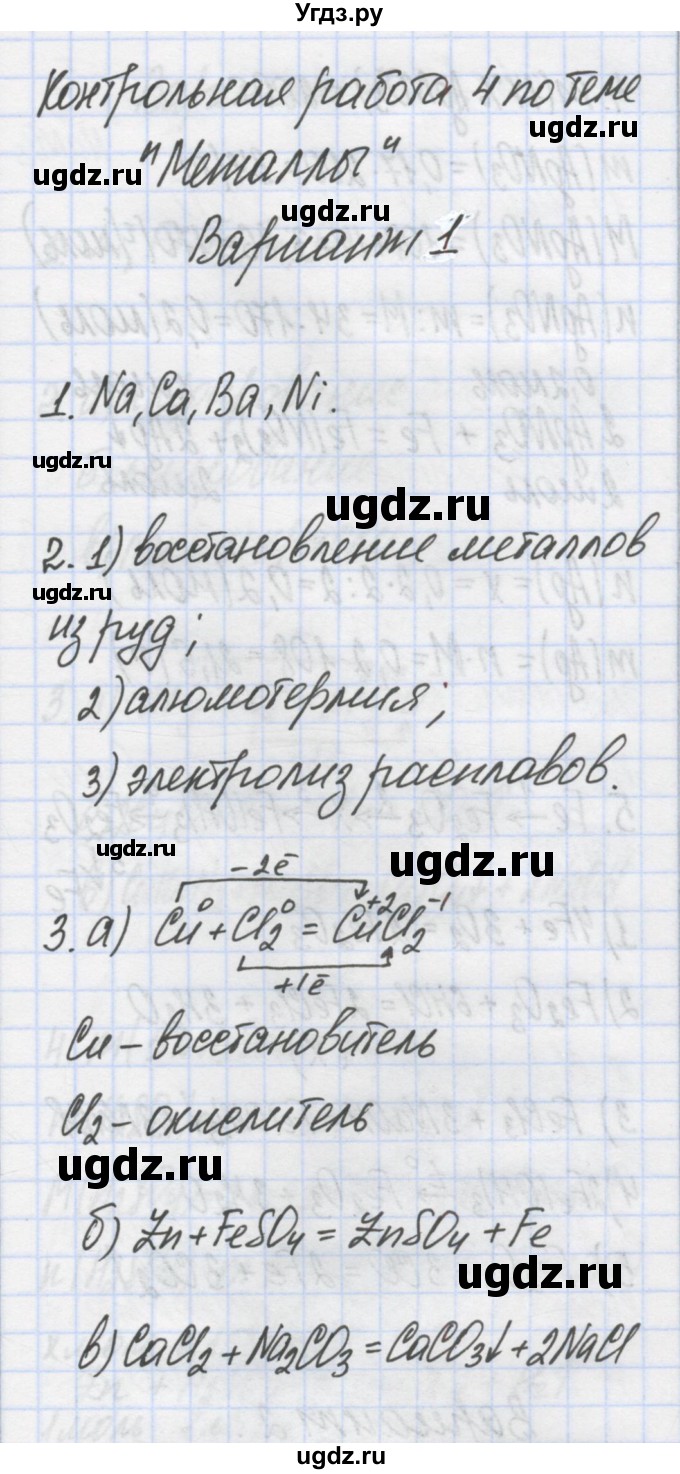 Угдз.ру
Контрольная работа 4 по теме
ugdz.ru
"Металлы"
ugdz.ru
ugdz.ru
Вариант 1
1. Na, Ca, Ba, Ni.
ugdz.ru
ugdz.ru
2. 1) восстановление металлов
ugdz.ru
из руд;
2) алюмотермия;
3) электролиз расплавов.
ugdz.ru
ugdz.ru
-2ē
3. а) Cu⁰ + Cl₂⁰ = Cu⁺²Cl₂⁻¹
+1ē
Cu – восстановитель
Cl₂ – окислитель
ugdz.ru
б) Zn + FeSO₄ = ZnSO₄ + Fe
ugdz.ru
в) CaCl₂ + Na₂CO₃ = CaCO₃↓ + 2NaCl
ugdz.ru
ugdz.ru